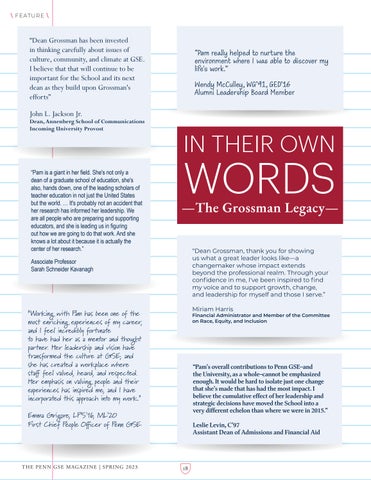 \ FEATURE \
"Dean Grossman has been invested
in thinking carefully about issues of
culture, community, and climate at GSE.
I believe that that will continue to be
important for the School and its next
dean as they build upon Grossman's
efforts"
John L. Jackson Jr.
Dean, Annenberg School of Communications
Incoming University Provost
"Pam really helped to nurture the
environment where I was able to discover my
life's work."
Wendy McCulley, WG'91, GED'16
Alumni Leadership Board Member
IN THEIR OWN
WORDS
—The Grossman Legacy—
"Pam is a giant in her field. She's not only a
dean of a graduate school of education, she's
also, hands down, one of the leading scholars of
teacher education in not just the United States
but the world. … It's probably not an accident that
her research has informed her leadership. We
are all people who are preparing and supporting
educators, and she is leading us in figuring
out how we are going to do that work. And she
knows a lot about it because it is actually the
center of her research."
Associate Professor
Sarah Schneider Kavanagh
"Dean Grossman, thank you for showing
us what a great leader looks like—a
changemaker whose impact extends
beyond the professional realm. Through your
confidence in me, I've been inspired to find
my voice and to support growth, change,
and leadership for myself and those I serve."
Miriam Harris
Financial Administrator and Member of the Committee
on Race, Equity, and Inclusion
"Working with Pam has been one of the
most enriching experiences of my career,
and I feel incredibly fortunate
to have had her as a mentor and thought
partner. Her leadership and vision have
transformed the culture at GSE, and
she has created a workplace where
staff feel valued, heard, and respected.
Her emphasis on valuing people and their
experiences has inspired me, and I have
incorporated this approach into my work."
Emma Grigore, LPS'16, ML'20
First Chief People Officer of Penn GSE
"Pam's overall contributions to Penn GSE-and
the University, as a whole-cannot be emphasized
enough. It would be hard to isolate just one change
that she's made that has had the most impact. I
believe the cumulative effect of her leadership and
strategic decisions have moved the School into a
very different echelon than where we were in 2015."
Leslie Levin, C'97
Assistant Dean of Admissions and Financial Aid
THE PENN GSE MAGAZINE | SPRING 2023
18